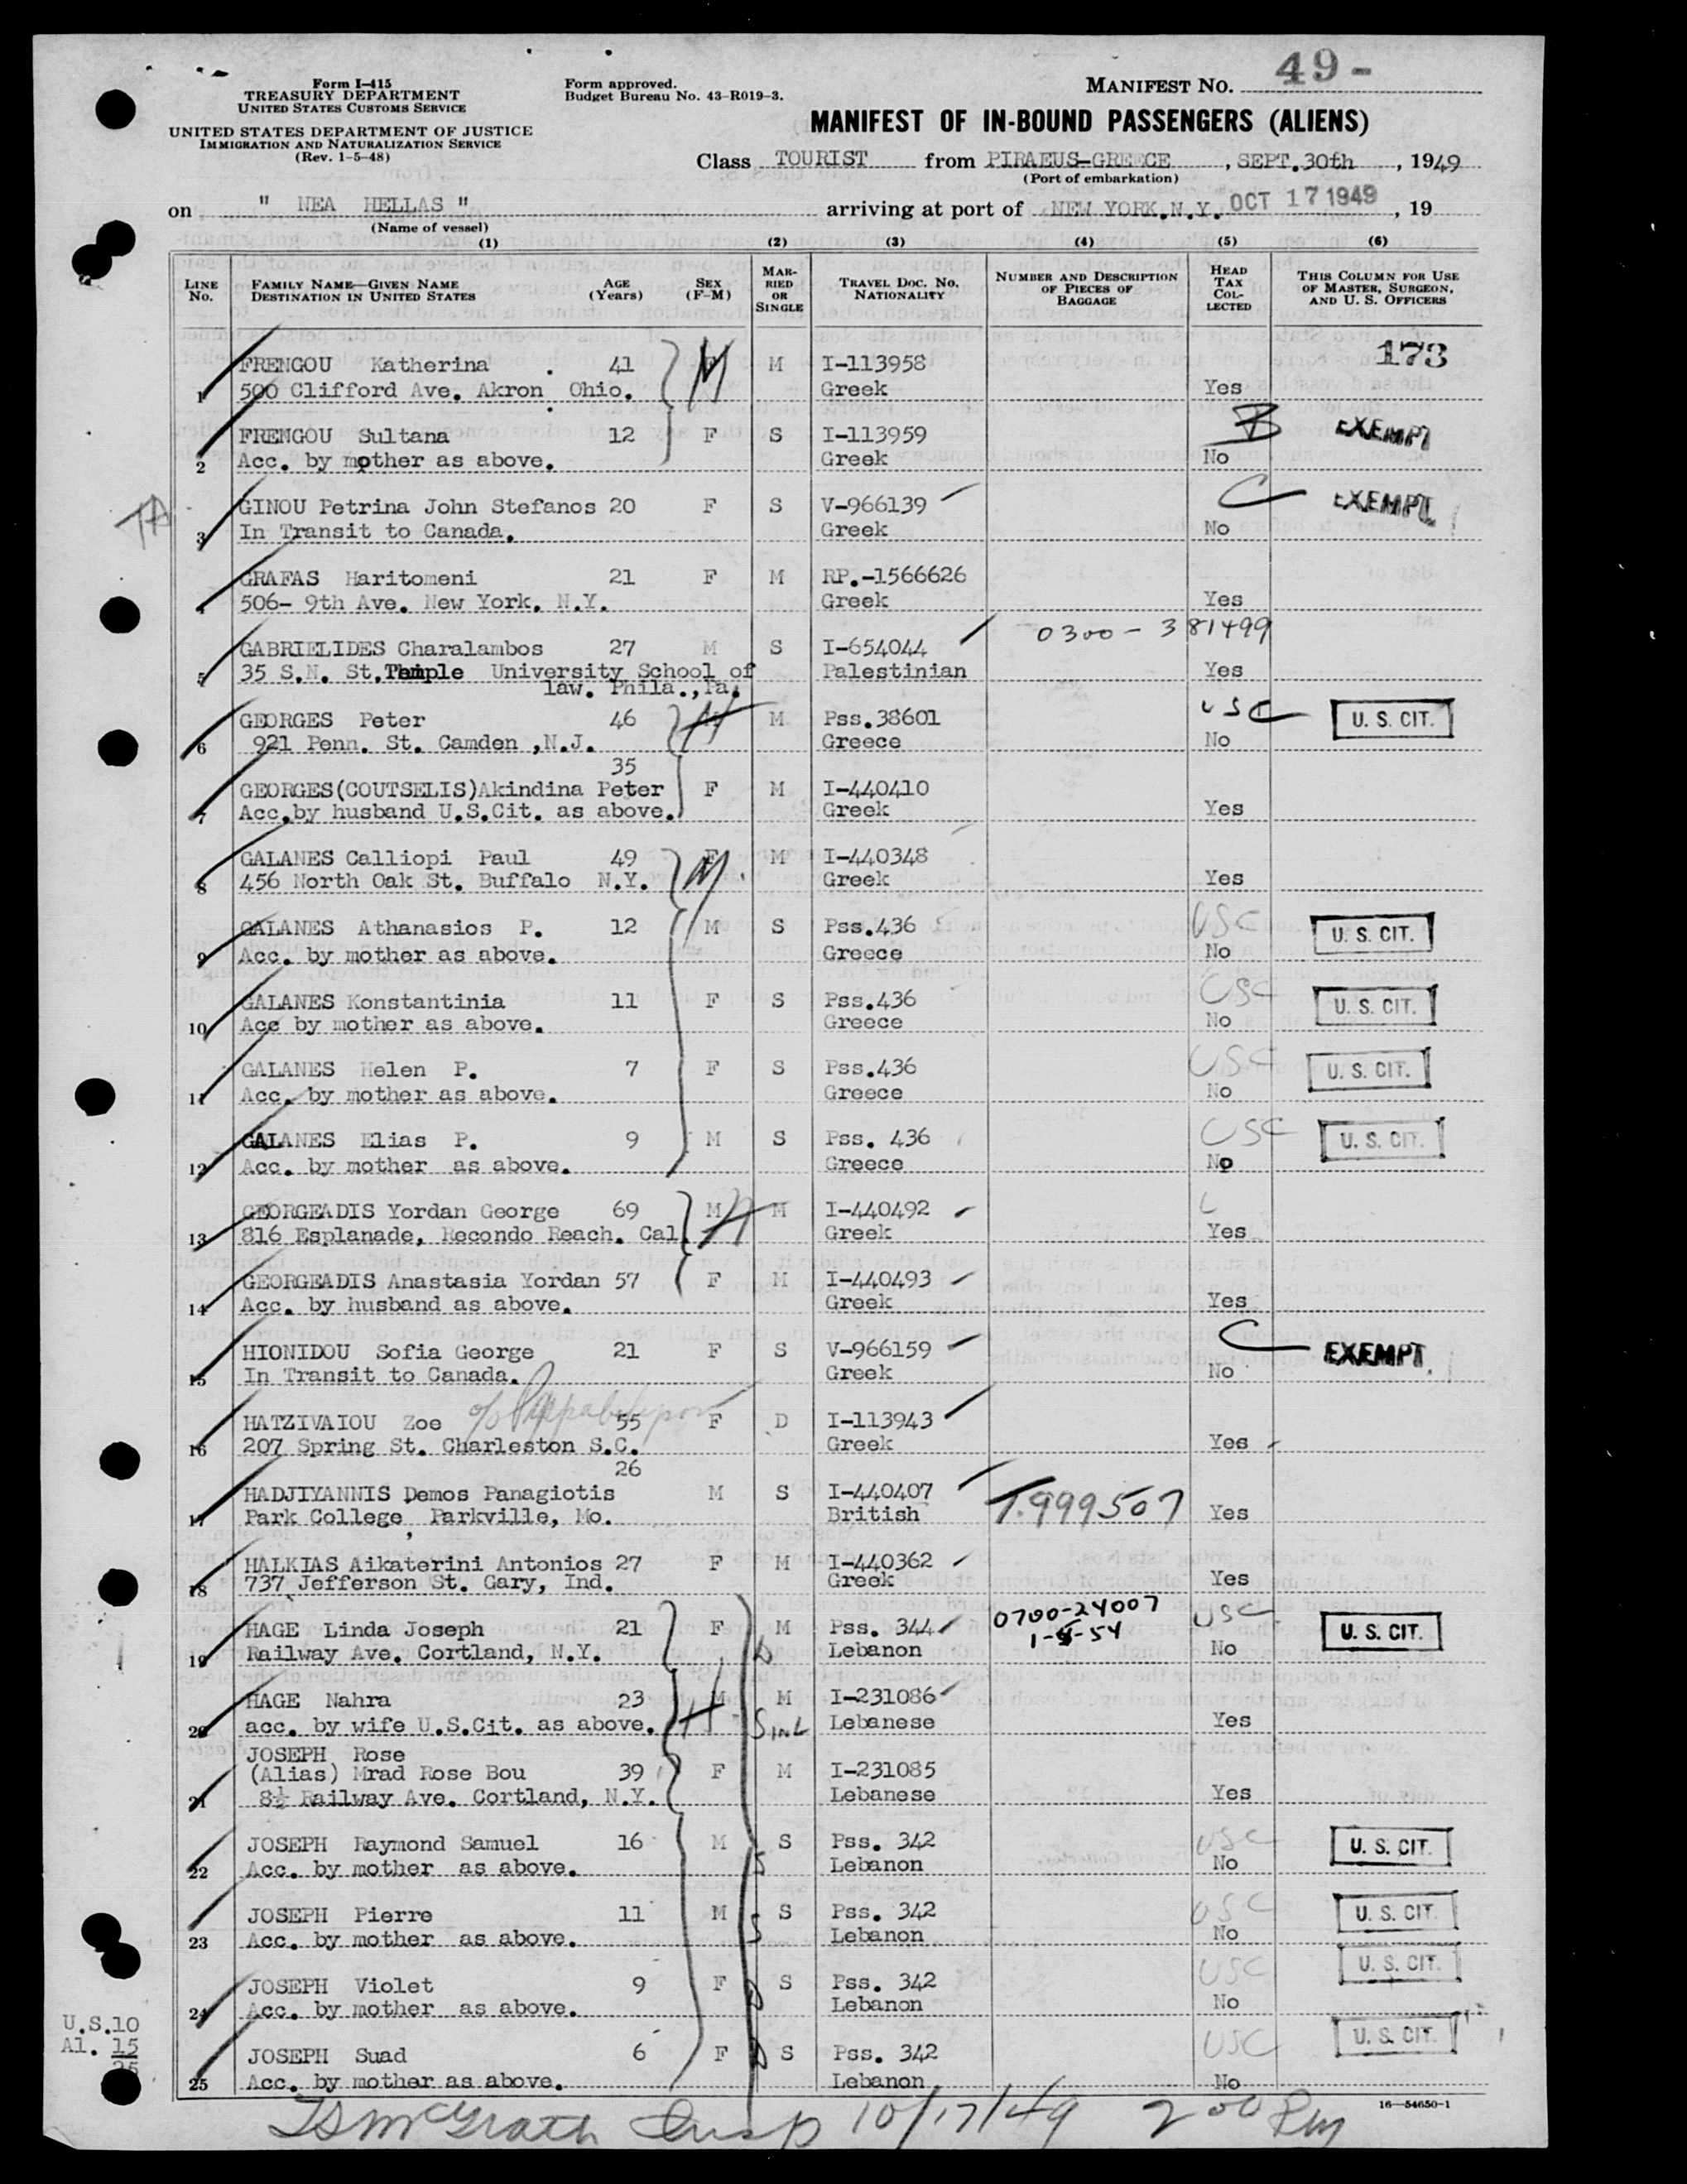 Form I-415
TREASURY DEPARTMENT
UNITED STATES CUSTOMS SERVICE
UNITED STATES DEPARTMENT OF JUSTICE
IMMIGRATION AND NATURALIZATION SERVICE
(Rev. 1-5-48)
Form approved.
Budget Bureau No. 43-R019-3.
MANIFEST NO. 49-
MANIFEST OF IN-BOUND PASSENGERS (ALIENS)
Class TOURIST from PIRAEUS-GREECE, SEPT.30th, 1949
(Port of embarkation)
on " NEA HELLAS " arriving at port of NEW YORK.N.Y. OCT 17 1949, 19
(Name of vessel)
(1) (2) (3) (4) (5) (6)
LINE No. FAMILY NAME—GIVEN NAME DESTINATION IN UNITED STATES AGE (Years) SEX (F-M) MARRIED OR SINGLE TRAVEL DOC. NO. NATIONALITY NUMBER AND DESCRIPTION OF PIECES OF BAGGAGE HEAD TAX COLLECTED THIS COLUMN FOR USE OF MASTER, SURGEON, AND U. S. OFFICERS
173
FRENGOU Katherina 41 M I-113958
1 500 Clifford Ave. Akron Ohio. Greek Yes
FRENGOU Sultana 12 F S I-113959 EXEMPT
2 Acc. by mother as above. Greek No
TA
GINOU Petrina John Stefanos 20 F S V-966139 C EXEMPT
3 In Transit to Canada. Greek No
GRAFAS Haritomeni 21 F M RP.-1566626
4 506- 9th Ave. New York. N.Y. Greek Yes
GABRIELIDES Charalambos 27 M S I-654044 0300-381499
5 35 S.N. St.Temple University School of Palestinian Yes
law. Phila.,Pa.
GEORGES Peter 46 M Pss.38601 USC U. S. CIT.
6 921 Penn. St. Camden ,N.J. Greece No
35
GEORGES(COUTSELIS)Akindina Peter F M I-440410
7 Acc.by husband U.S.Cit. as above. Greek Yes
GALANES Calliopi Paul 49 F M I-440348
8 456 North Oak St. Buffalo N.Y. Greek Yes
GALANES Athanasios P. 12 M S Pss.436 USC U. S. CIT.
9 Acc. by mother as above. Greece No
GALANES Konstantinia 11 F S Pss.436 USC U. S. CIT.
10 Acc by mother as above. Greece No
GALANES Helen P. 7 F S Pss.436 USC U. S. CIT.
11 Acc. by mother as above. Greece No
GALANES Elias P. 9 M S Pss. 436 USC U. S. CIT.
12 Acc. by mother as above. Greece No
GEORGEADIS Yordan George 69 M M I-440492 C
13 816 Esplanade, Recondo Reach. Cal. Greek Yes
GEORGEADIS Anastasia Yordan 57 F M I-440493
14 Acc. by husband as above. Greek Yes
HIONIDOU Sofia George 21 F S V-966159 C EXEMPT
15 In Transit to Canada. Greek No
HATZIVAIOU Zoe 55 F D I-113943
16 207 Spring St. Charleston S.C. Greek Yes
26
HADJIYANNIS Demos Panagiotis M S I-440407 T.999507
17 Park College, Parkville, Mo. British Yes
HALKIAS Aikaterini Antonios 27 F M I-440362
18 737 Jefferson St. Gary, Ind. Greek Yes
HAGE Linda Joseph 21 F M Pss. 344 0700-24007 USC U. S. CIT.
1-5-54
19 Railway Ave. Cortland, N.Y. Lebanon No
HAGE Nahra 23 M M I-231086
20 acc. by wife U.S.Cit. as above. Lebanese Yes
JOSEPH Rose
(Alias) Mrad Rose Bou 39 F M I-231085
21 8½ Railway Ave. Cortland, N.Y. Lebanese Yes
JOSEPH Raymond Samuel 16 M S Pss. 342 USC U. S. CIT.
22 Acc. by mother as above. Lebanon No
JOSEPH Pierre 11 M S Pss. 342 USC U. S. CIT.
23 Acc. by mother as above. Lebanon No
JOSEPH Violet 9 F S Pss. 342 USC U. S. CIT.
24 Acc. by mother as above. Lebanon No
U.S.10
Al. 15
JOSEPH Suad 6 F S Pss. 342 USC U. S. CIT.
25 Acc. by mother as above. Lebanon No
16—54650-1
McGrath Insp 10/17/49 2 00 Pm